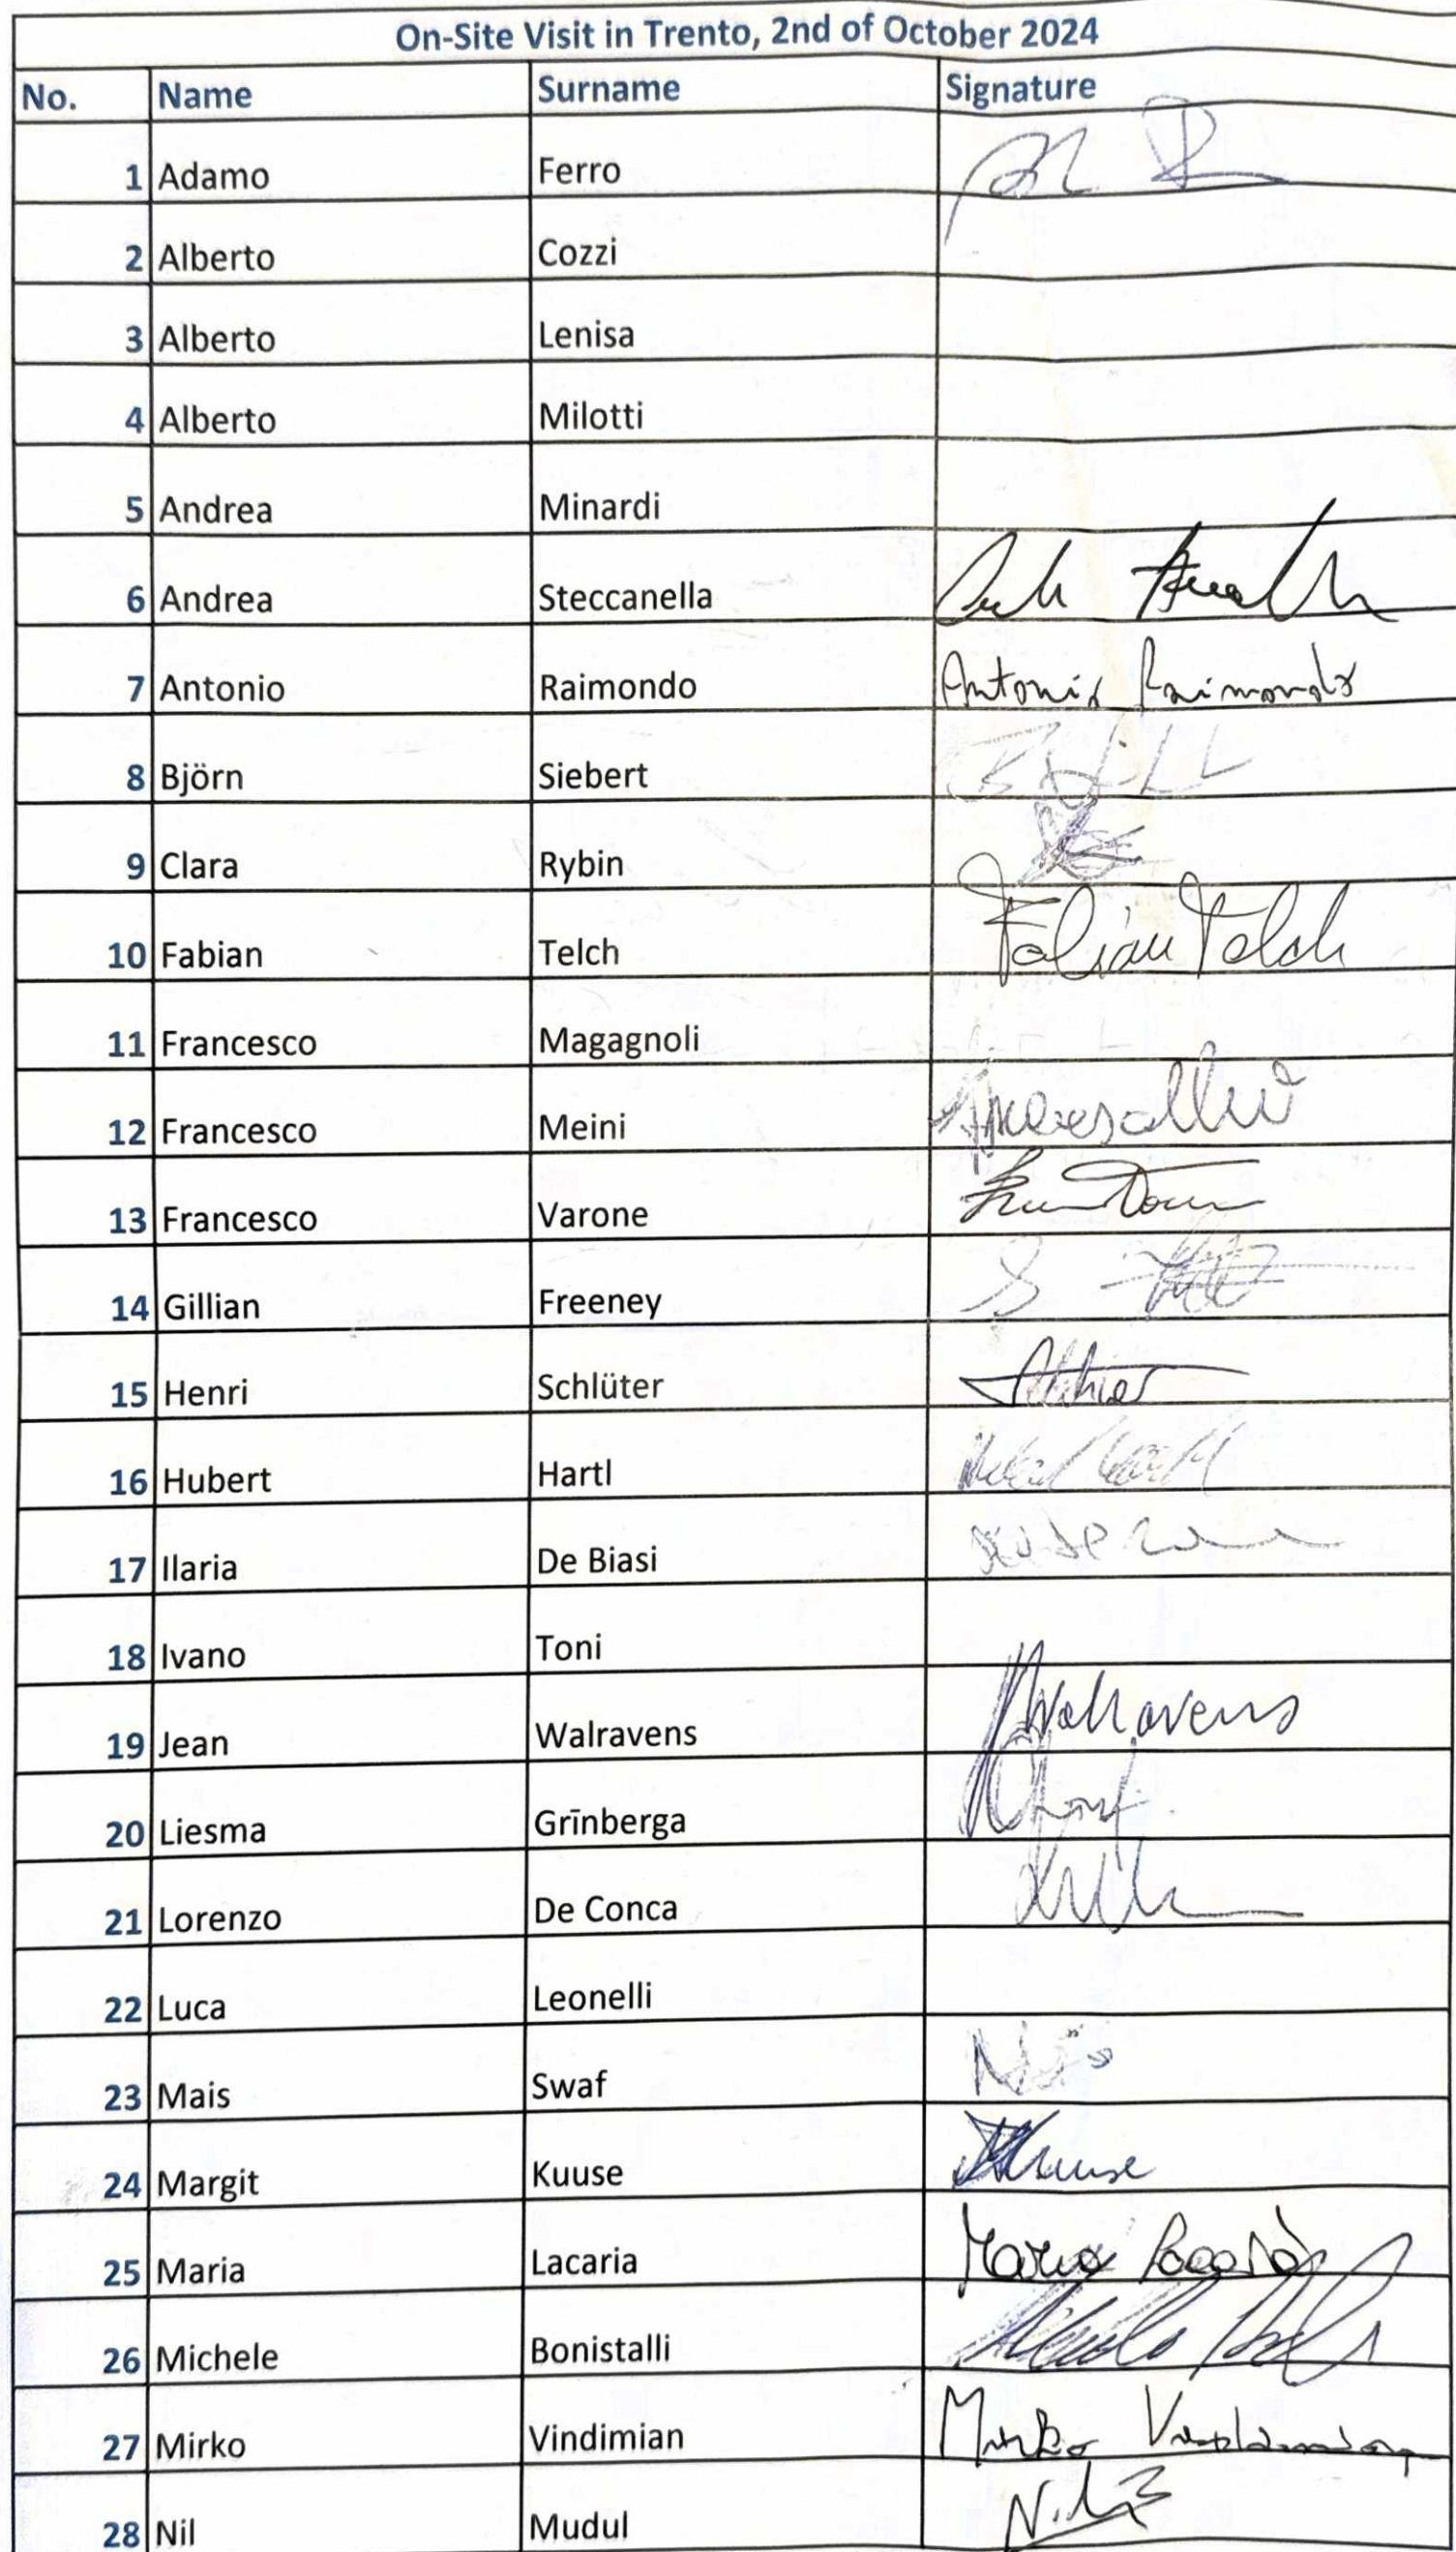 On-Site Visit in Trento, 2nd of October 2024
No. Name Surname Signature
1 Adamo Ferro
2 Alberto Cozzi
3 Alberto Lenisa
4 Alberto Milotti
5 Andrea Minardi
6 Andrea Steccanella
7 Antonio Raimondo Antonio Raimondo
8 Björn Siebert
9 Clara Rybin
10 Fabian Telch Fabian Telch
11 Francesco Magagnoli
12 Francesco Meini
13 Francesco Varone
14 Gillian Freeney
15 Henri Schlüter
16 Hubert Hartl
17 Ilaria De Biasi
18 Ivano Toni
19 Jean Walravens Walravens
20 Liesma Grīnberga
21 Lorenzo De Conca
22 Luca Leonelli
23 Mais Swaf
24 Margit Kuuse Kuuse
25 Maria Lacaria Maria
26 Michele Bonistalli
27 Mirko Vindimian Mirko Vindimian
28 Nil Mudul